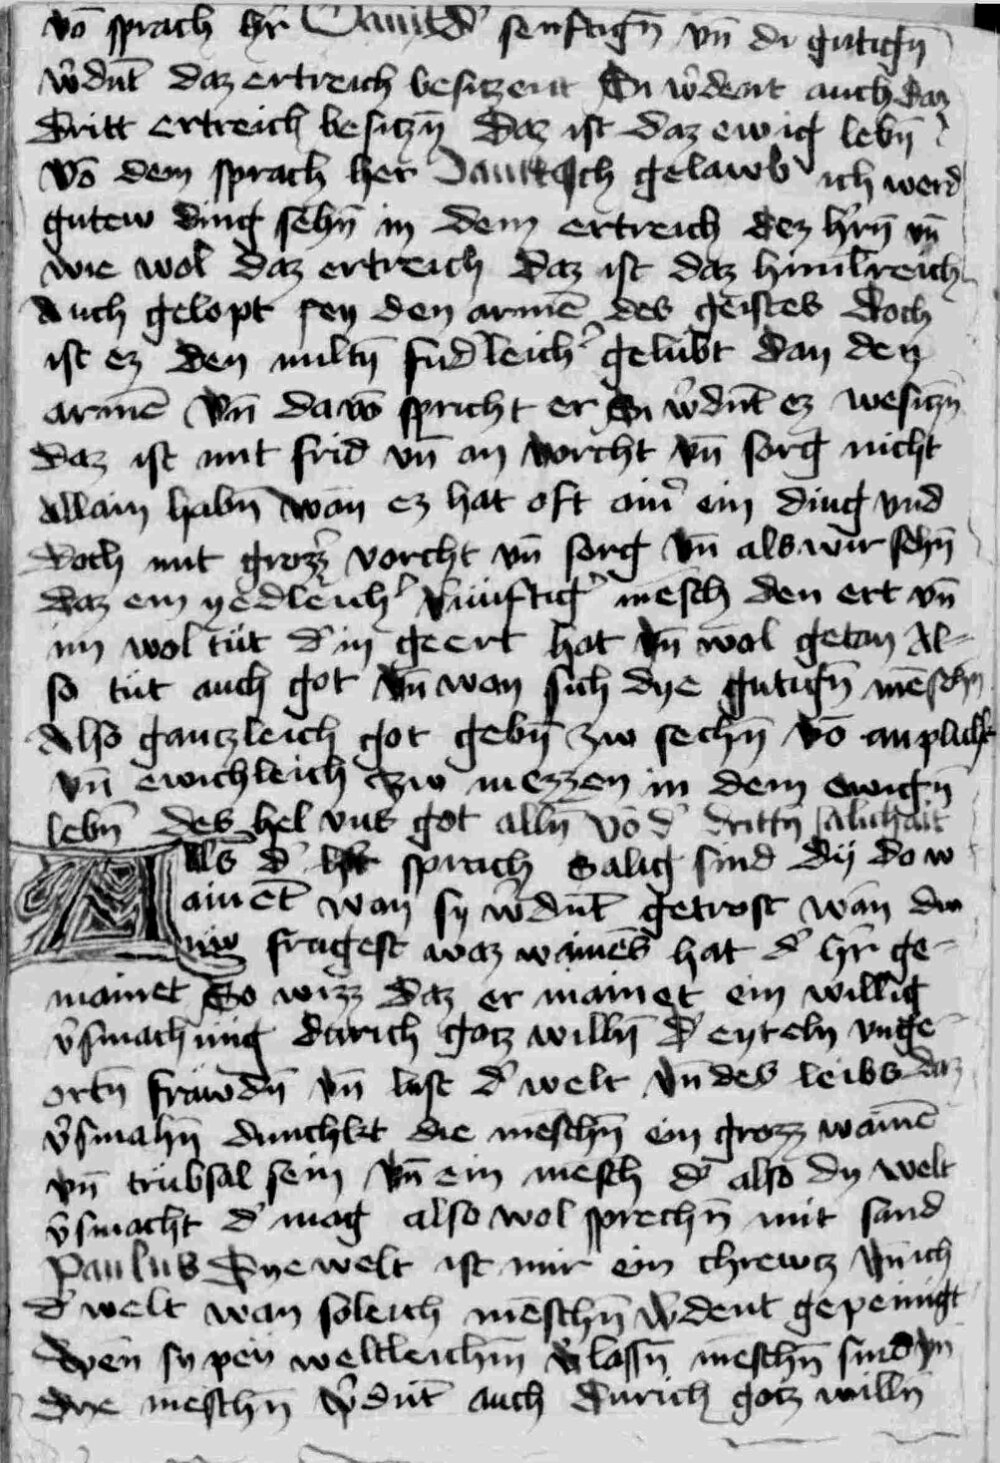 vō sprach hʼr Dauitd senftigñ vñ di gutigñ
wʼdnt daz ertreich besitzent Si wʼdent auch daz
dritt ertreich besitzñ Daz ist daz ewig lebñ
Vō dem sprach her Dauit Ich gelawb ich werd
gutew ding sehñ in dem ertreich dez hʼrñ vñ
wie wol daz ertreich daz ist daz himlreich
Auch gelopt sey den armē des geistes Doch
ist ez den miltñ fudleichʼ gelubt dan den
armē Vñ davō spricht er Si wʼdnt ez wesitzñ
daz ist mit frid vñ an vorcht vñ sorg nicht
Allain habñ wan ez hat oft ainʼ ein ding vnd
doch mit grozzʼ vorcht vñ sorg Vñ als wir sehñ
daz ein yedleichʼ v̄nūftigʼ mēsch den ert vñ
im wol tūt dʼ in geert hat vñ wol getan Al-
so tūt auch got Vñ wan sich dye gutigñ mēschñ
Also gantzleich got gebñ zw sechñ vō anplickʼ
vñ ewichleich zw niezzen in dem ewigñ
lebñ des hel vns got allñ Vō dʼ drittñ salichait
Als dʼ sprach Salig sind dij do w
ainēt wan sy wʼdnt getrost wan du
nw fragest waz wainēs hat dʼ hʼr ge-
mainet So wizz daz er mainet ein willig
vʼsmachung durich gotz willñ dʼ eyteln vnge-
ortñ frawdñ vñ lust dʼ welt vñ des leibs daz
vʼsmahñ dunchkt die mēschñ ein grozz wainē
vñ trūbsal sein Vñ ein mesch dʼ also dy welt
vʼsmacht dʼ mag also wol sprechñ mit sand
Paulus Dye welt ist mir ein chrewtz Vñ ich
dʼ welt wan soleich mēschñ wʼdent gepeinigt
Wen sy pey weltleichñ vʼlassñ meschñ sind vñ
dye meschñ wʼdnt auch durich gotz willñ